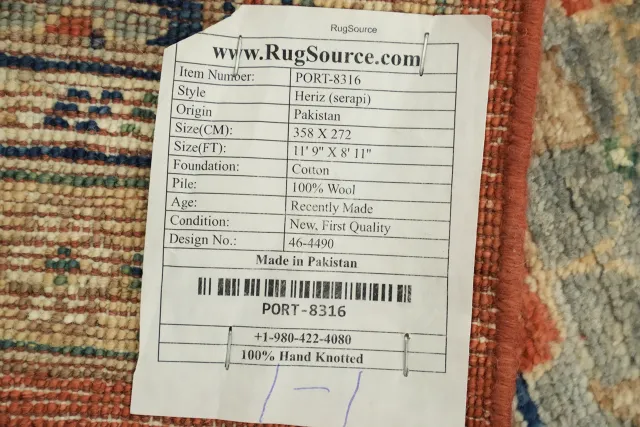 RugSource
www.RugSource.com
Item Number: PORT-8316
Style Heriz (serapi)
Origin Pakistan
Size(CM): 358 X 272
Size(FT): 11' 9" X 8' 11"
Foundation: Cotton
Pile: 100% Wool
Age: Recently Made
Condition: New, First Quality
Design No.: 46-4490
Made in Pakistan
PORT-8316
+1-980-422-4080
100% Hand Knotted
1-1